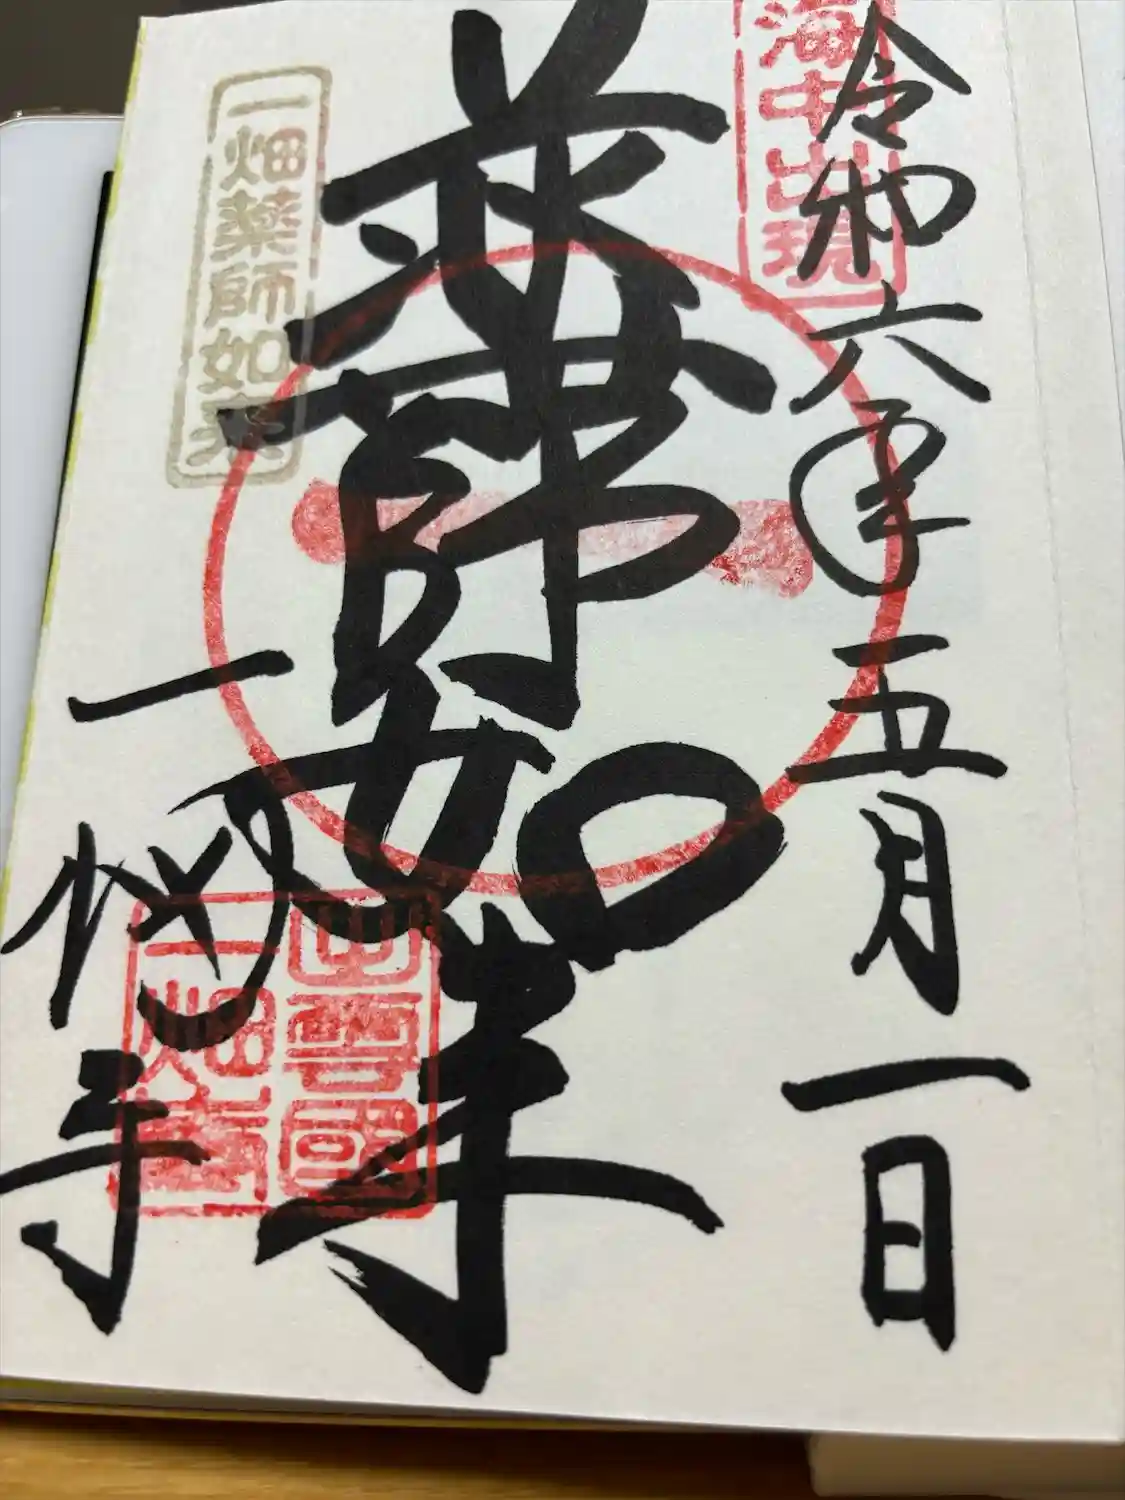 令和六年五月一日
海中出現
薬師如来
一畑薬師如来
一畑寺
出雲國
一畑寺